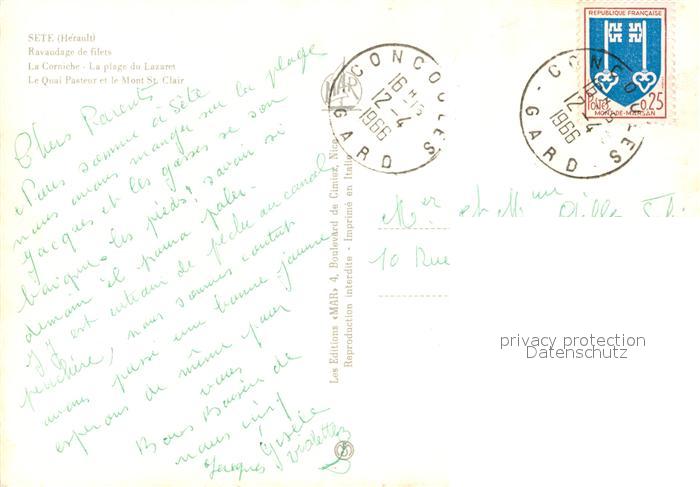 SETE (Hérault)
Ravaudage de filets
La Corniche - La plage du Lazaret
Le Quai Pasteur et le Mont St. Clair
Chers Parents
somme à Sète
nous avons manger sur la plage
Jacques et les gosses se son
les pieds, savoir si
demain il poura
J y est entrain de peche au canal
nous sommes contat
avons passé une bonne
esperons de même pour
vous
Bons Baisers de
nous cinq
Jacques Gisèle
Violette
Les Editions «MAR» 4, Boulevard de Cimiez, Nice
Reproduction interdite - Imprimé en Italie
CONCOULES
16 H-15
12-4
1966
GARD
REPUBLIQUE FRANÇAISE
POSTES 0,25
MONT-DE-MARSAN
CONCOULES
12-4
1966
GARD
Mr et Mme
10 Rue
privacy protection
Datenschutz